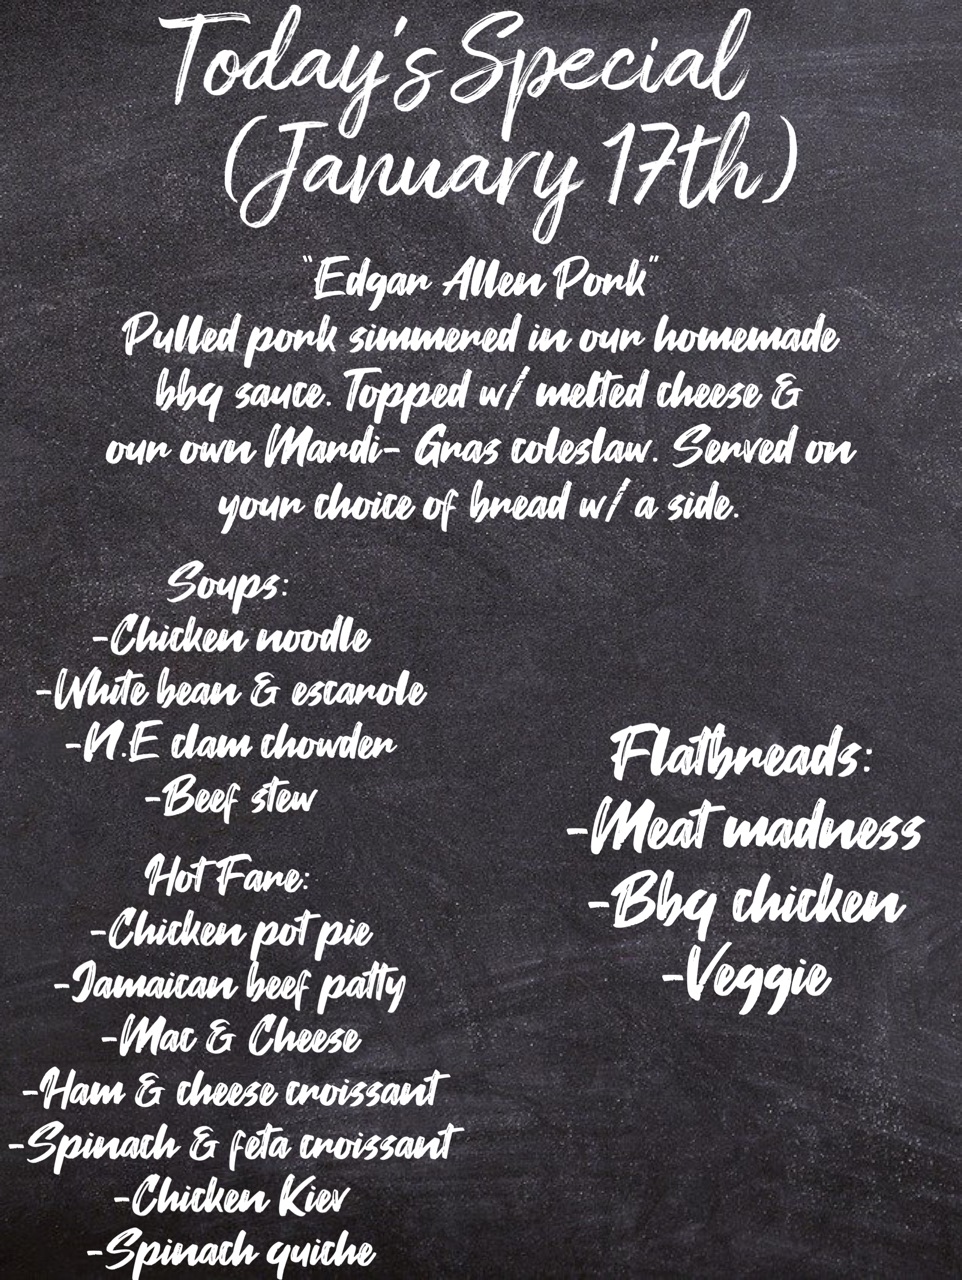 Today's Special
(January 17th)
"Edgar Allen Pork"
Pulled pork simmered in our homemade
bbq sauce. Topped w/ melted cheese &
our own Mardi- Gras coleslaw. Served on
your choice of bread w/ a side.
Soups:
-Chicken noodle
-White bean & escarole
-N.E clam chowder
-Beef stew
Hot Fare:
-Chicken pot pie
-Jamaican beef patty
-Mac & Cheese
-Ham & cheese croissant
-Spinach & feta croissant
-Chicken Kiev
-Spinach quiche
Flatbreads:
-Meat madness
-Bbq chicken
-Veggie